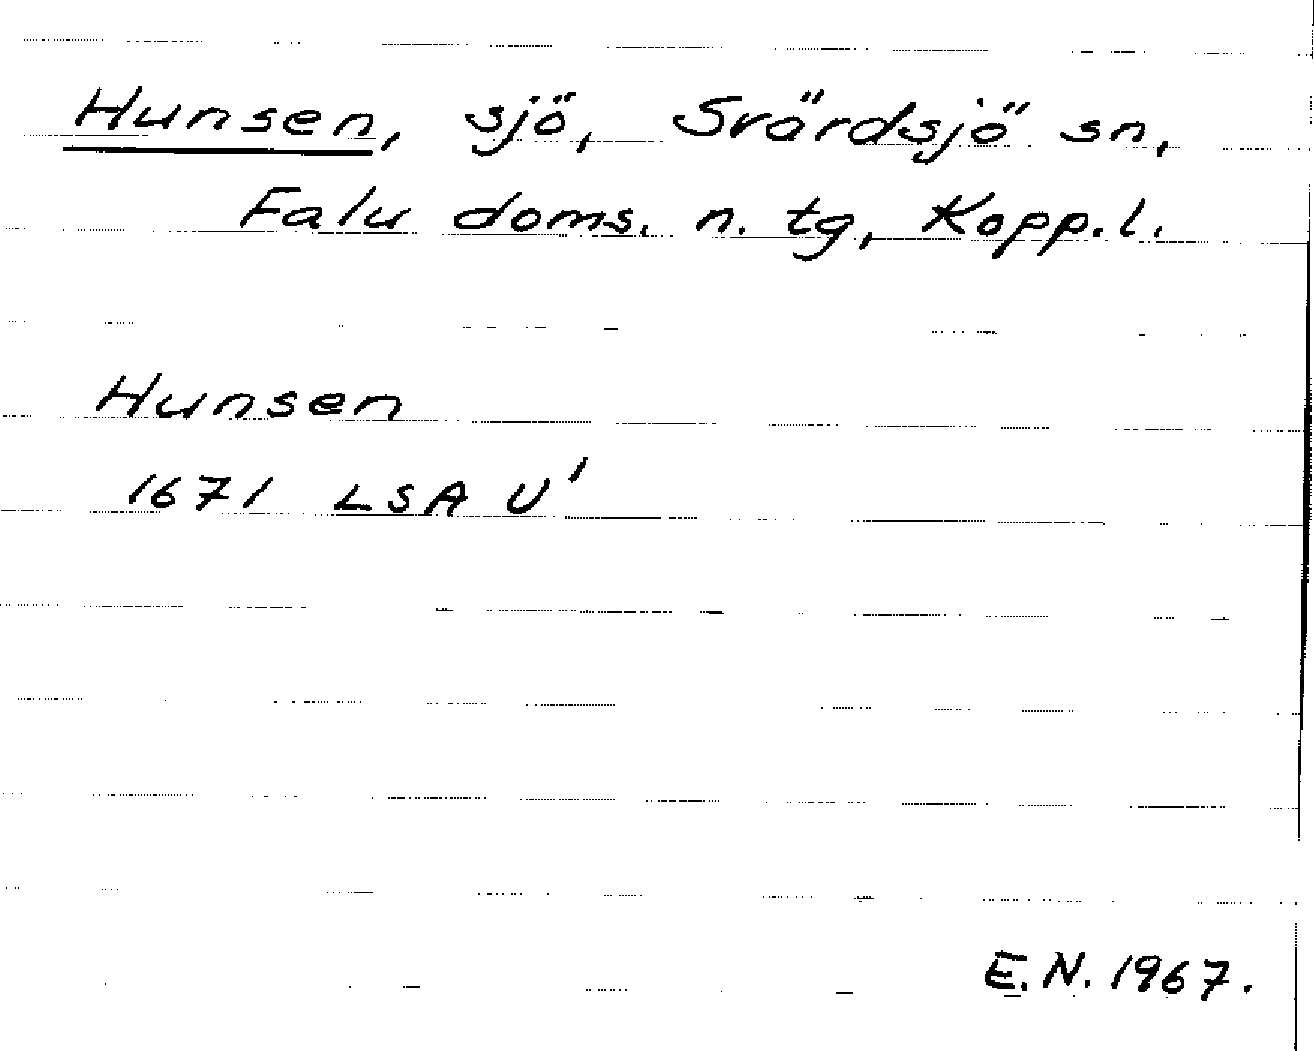 Hunsen, sjö, Svärdsjö sn,
Falu doms. n. tg, Kopp. l.
Hunsen
1671 LSA U'
E.N. 1967.